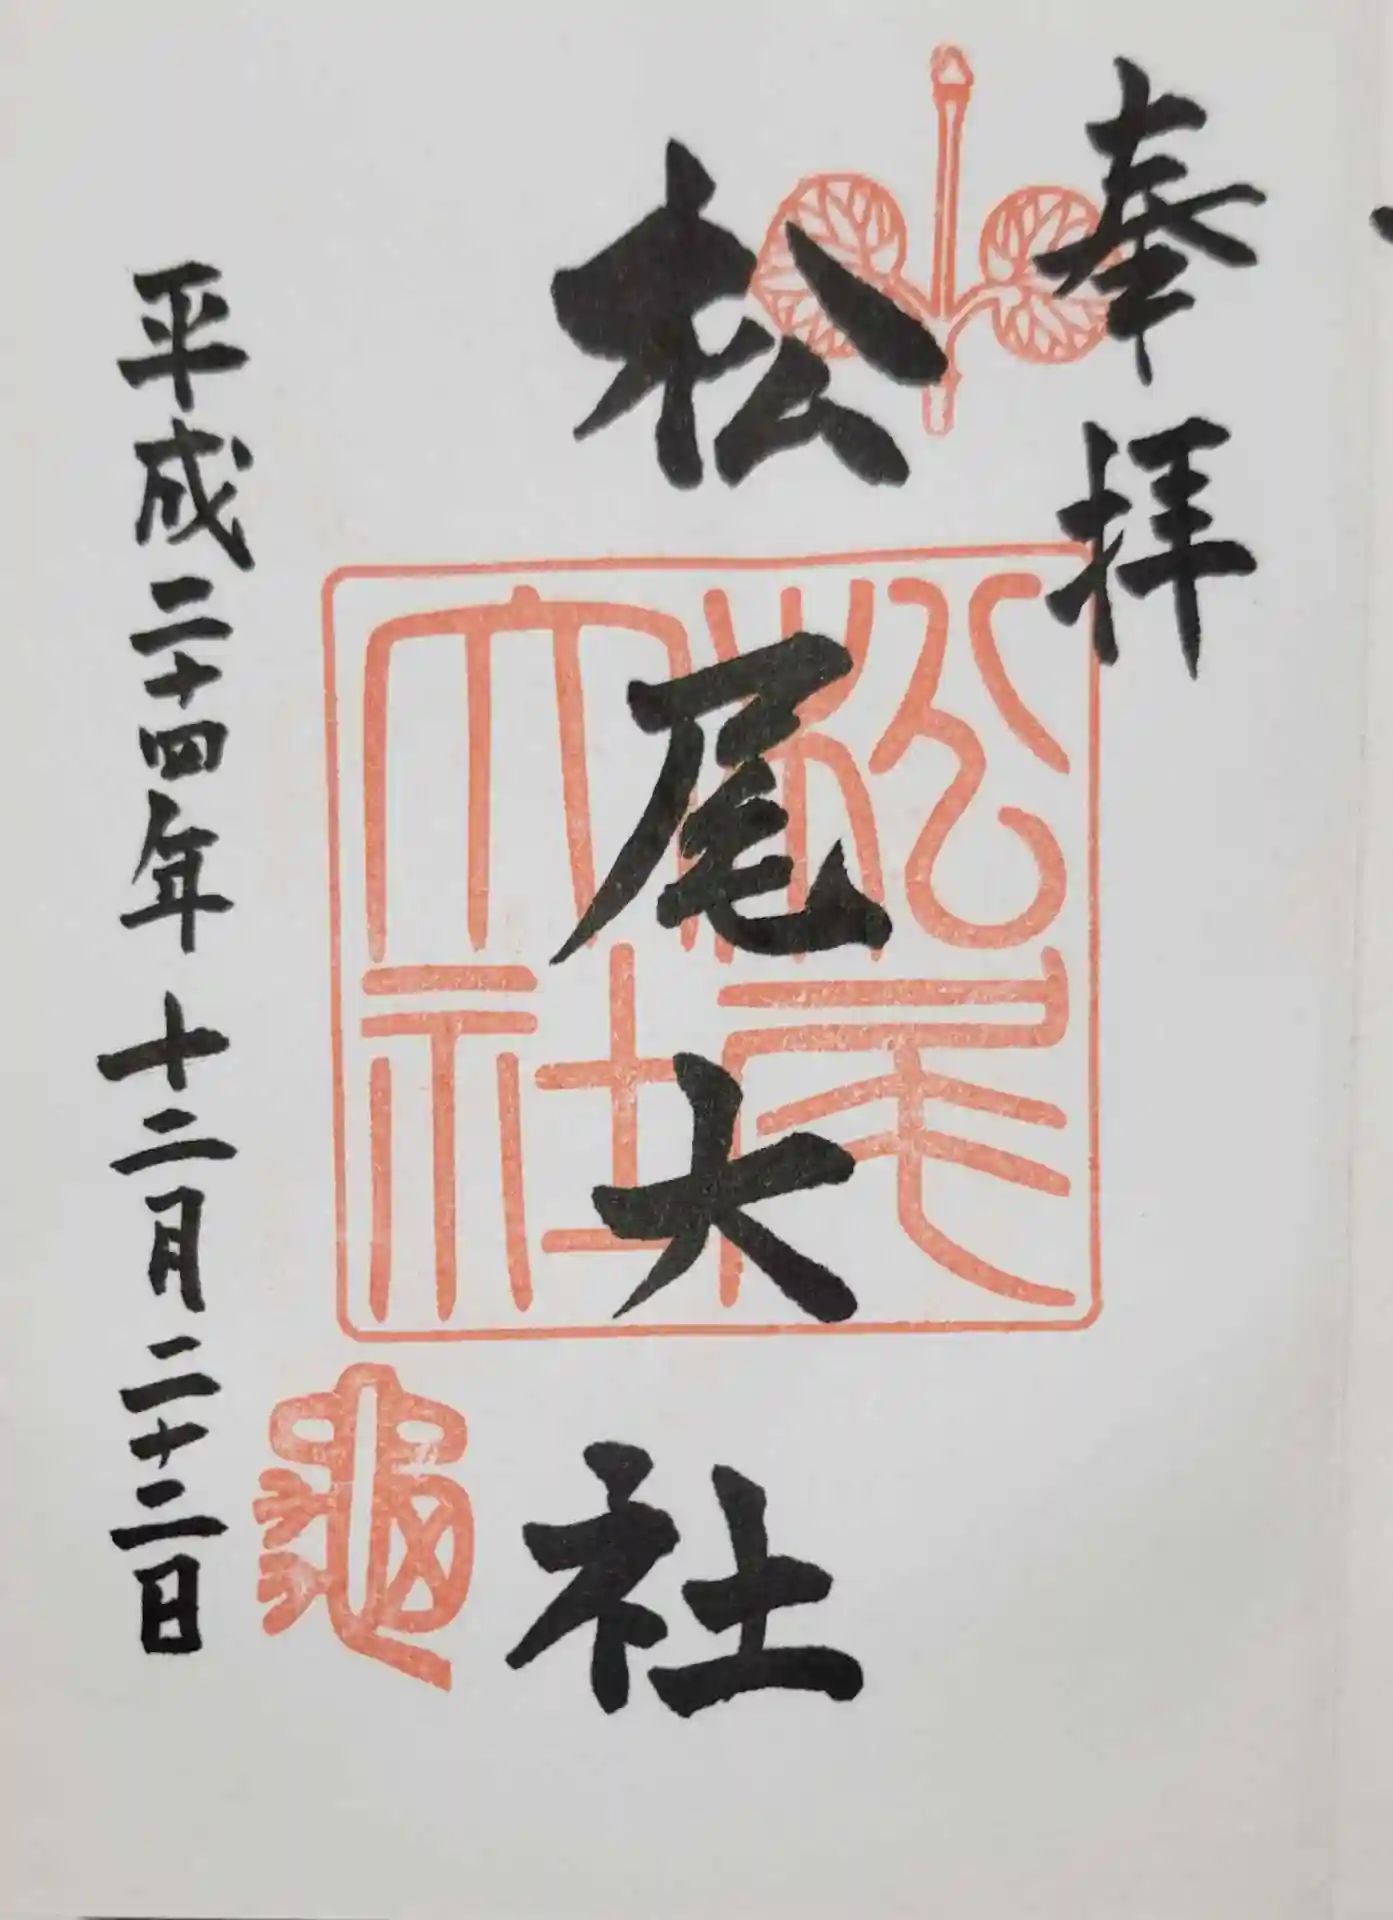 奉拝
松尾大社
松尾大社
平成二十四年十二月二十二日
亀